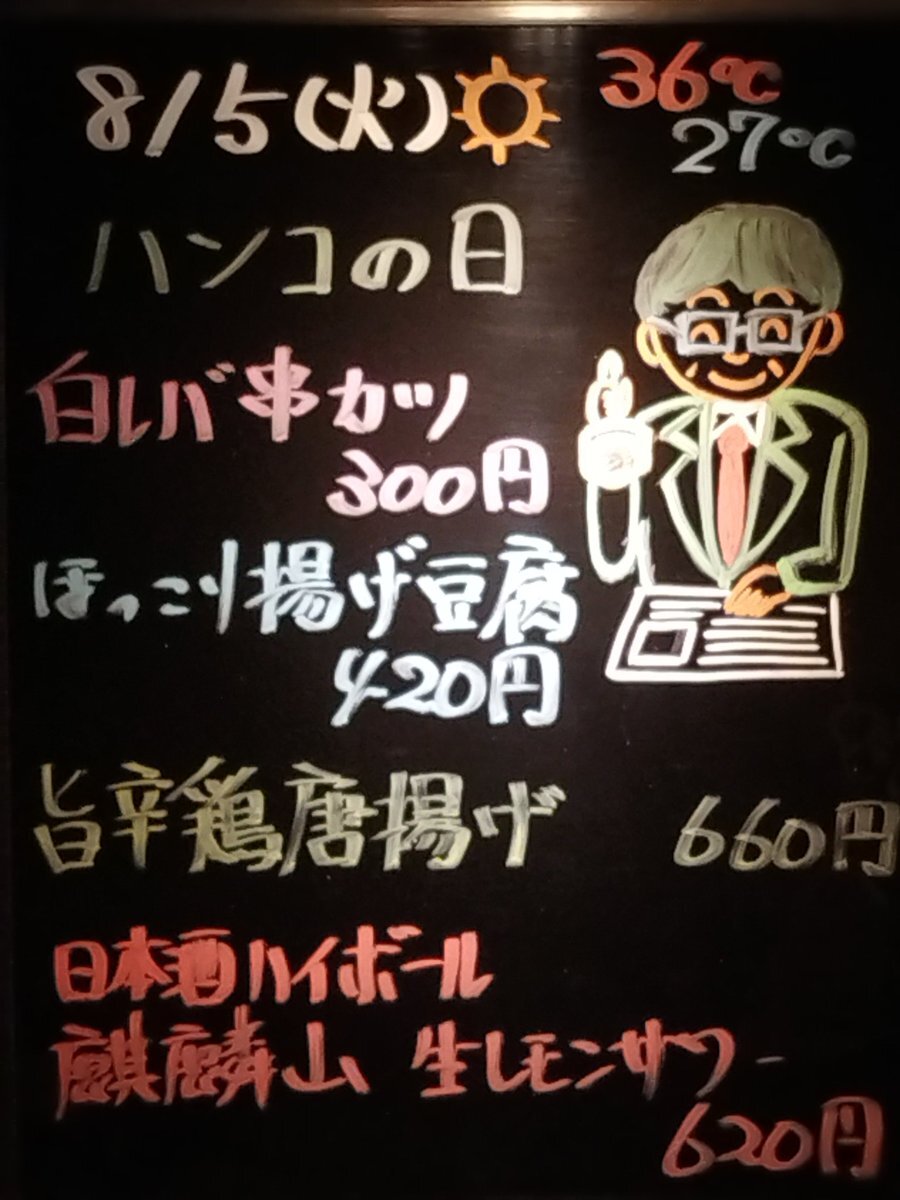 8/5(火)
36℃
27℃
ハンコの日
白レバ串カツ
300円
ほっこり揚げ豆腐
420円
旨辛鶏唐揚げ 660円
日本酒ハイボール
麒麟山 生レモンサワー
620円